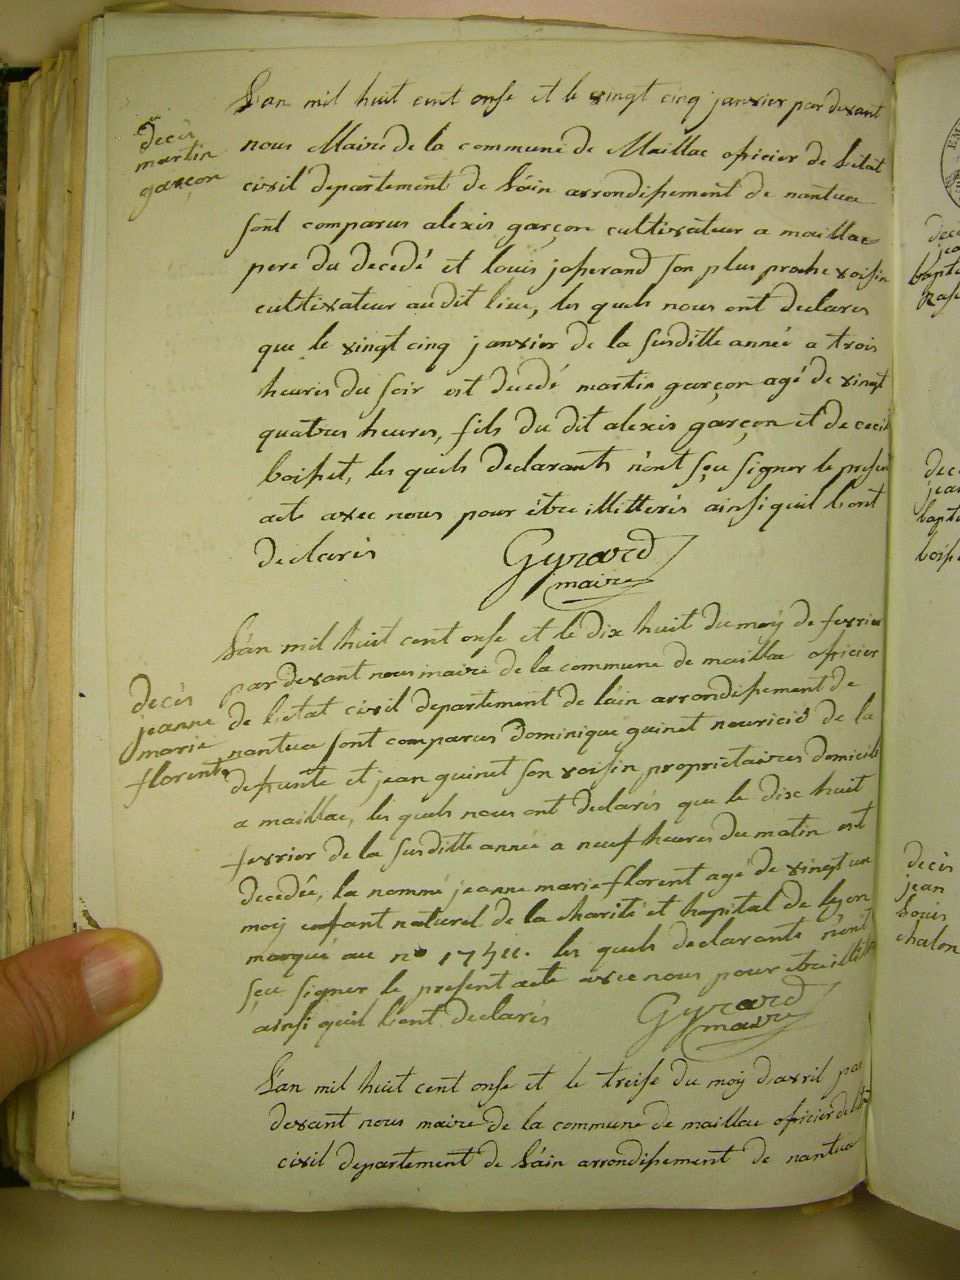 decès
martin
garçon
L'an mil huit cent onse et le vingt cinq janvier par devant
nous Maire de la commune de Maillac oficier de l'etat
civil departement de L'áin arrondissement de nantua
sont comparus alexis garçon cultivateur a maillac
pere du decedé et louis josserand son plus proche voisin
cultivateur au dit lieu, les quels nous ont declares
que le vingt cinq janvier de la susditte année a trois
heures du soir est decedé martin garçon agé de vingt
quatres heures, fils du dit alexis garçon et de cecil
boisset, les quels declarants n'ont sçu signer le presen
acte avec nous pour être illitterés ainsi quil l'ont
declarés
Gyrard
maire
decès
jeanne
marie
florent
L'án mil huit cent onse et le dix huit du moÿ de fevrier
par devant nous maire de la commune de maillac oficier
de l'etat civil departement de lain arrondissement de
nantua sont comparus dominique guinet nouricié de la
defunte et jean guinet son voisin propriétaires domicilié
a maillac, les quels nous ont declarés que le dix huit
fevrier de la susditte année a neuf heures du matin est
decedée, la nommé jeanne marie florent agé de vingt un
moÿ enfant naturel de la charité et hopital de leyon
marqué au n°
les quels declarants n'ont
sçu signer le present acte avec nous pour etre
ainsi quil l'ont declarés
Gyrard
maire
L'an mil huit cent onse et le treise du moÿ davril par
devant nous maire de la commune de maillac oficier de
civil departement de L'áin arrondissement de nantua
decè
jea
bapti
decè
jean
bapti
boiss
decès
jean
louis
chalon